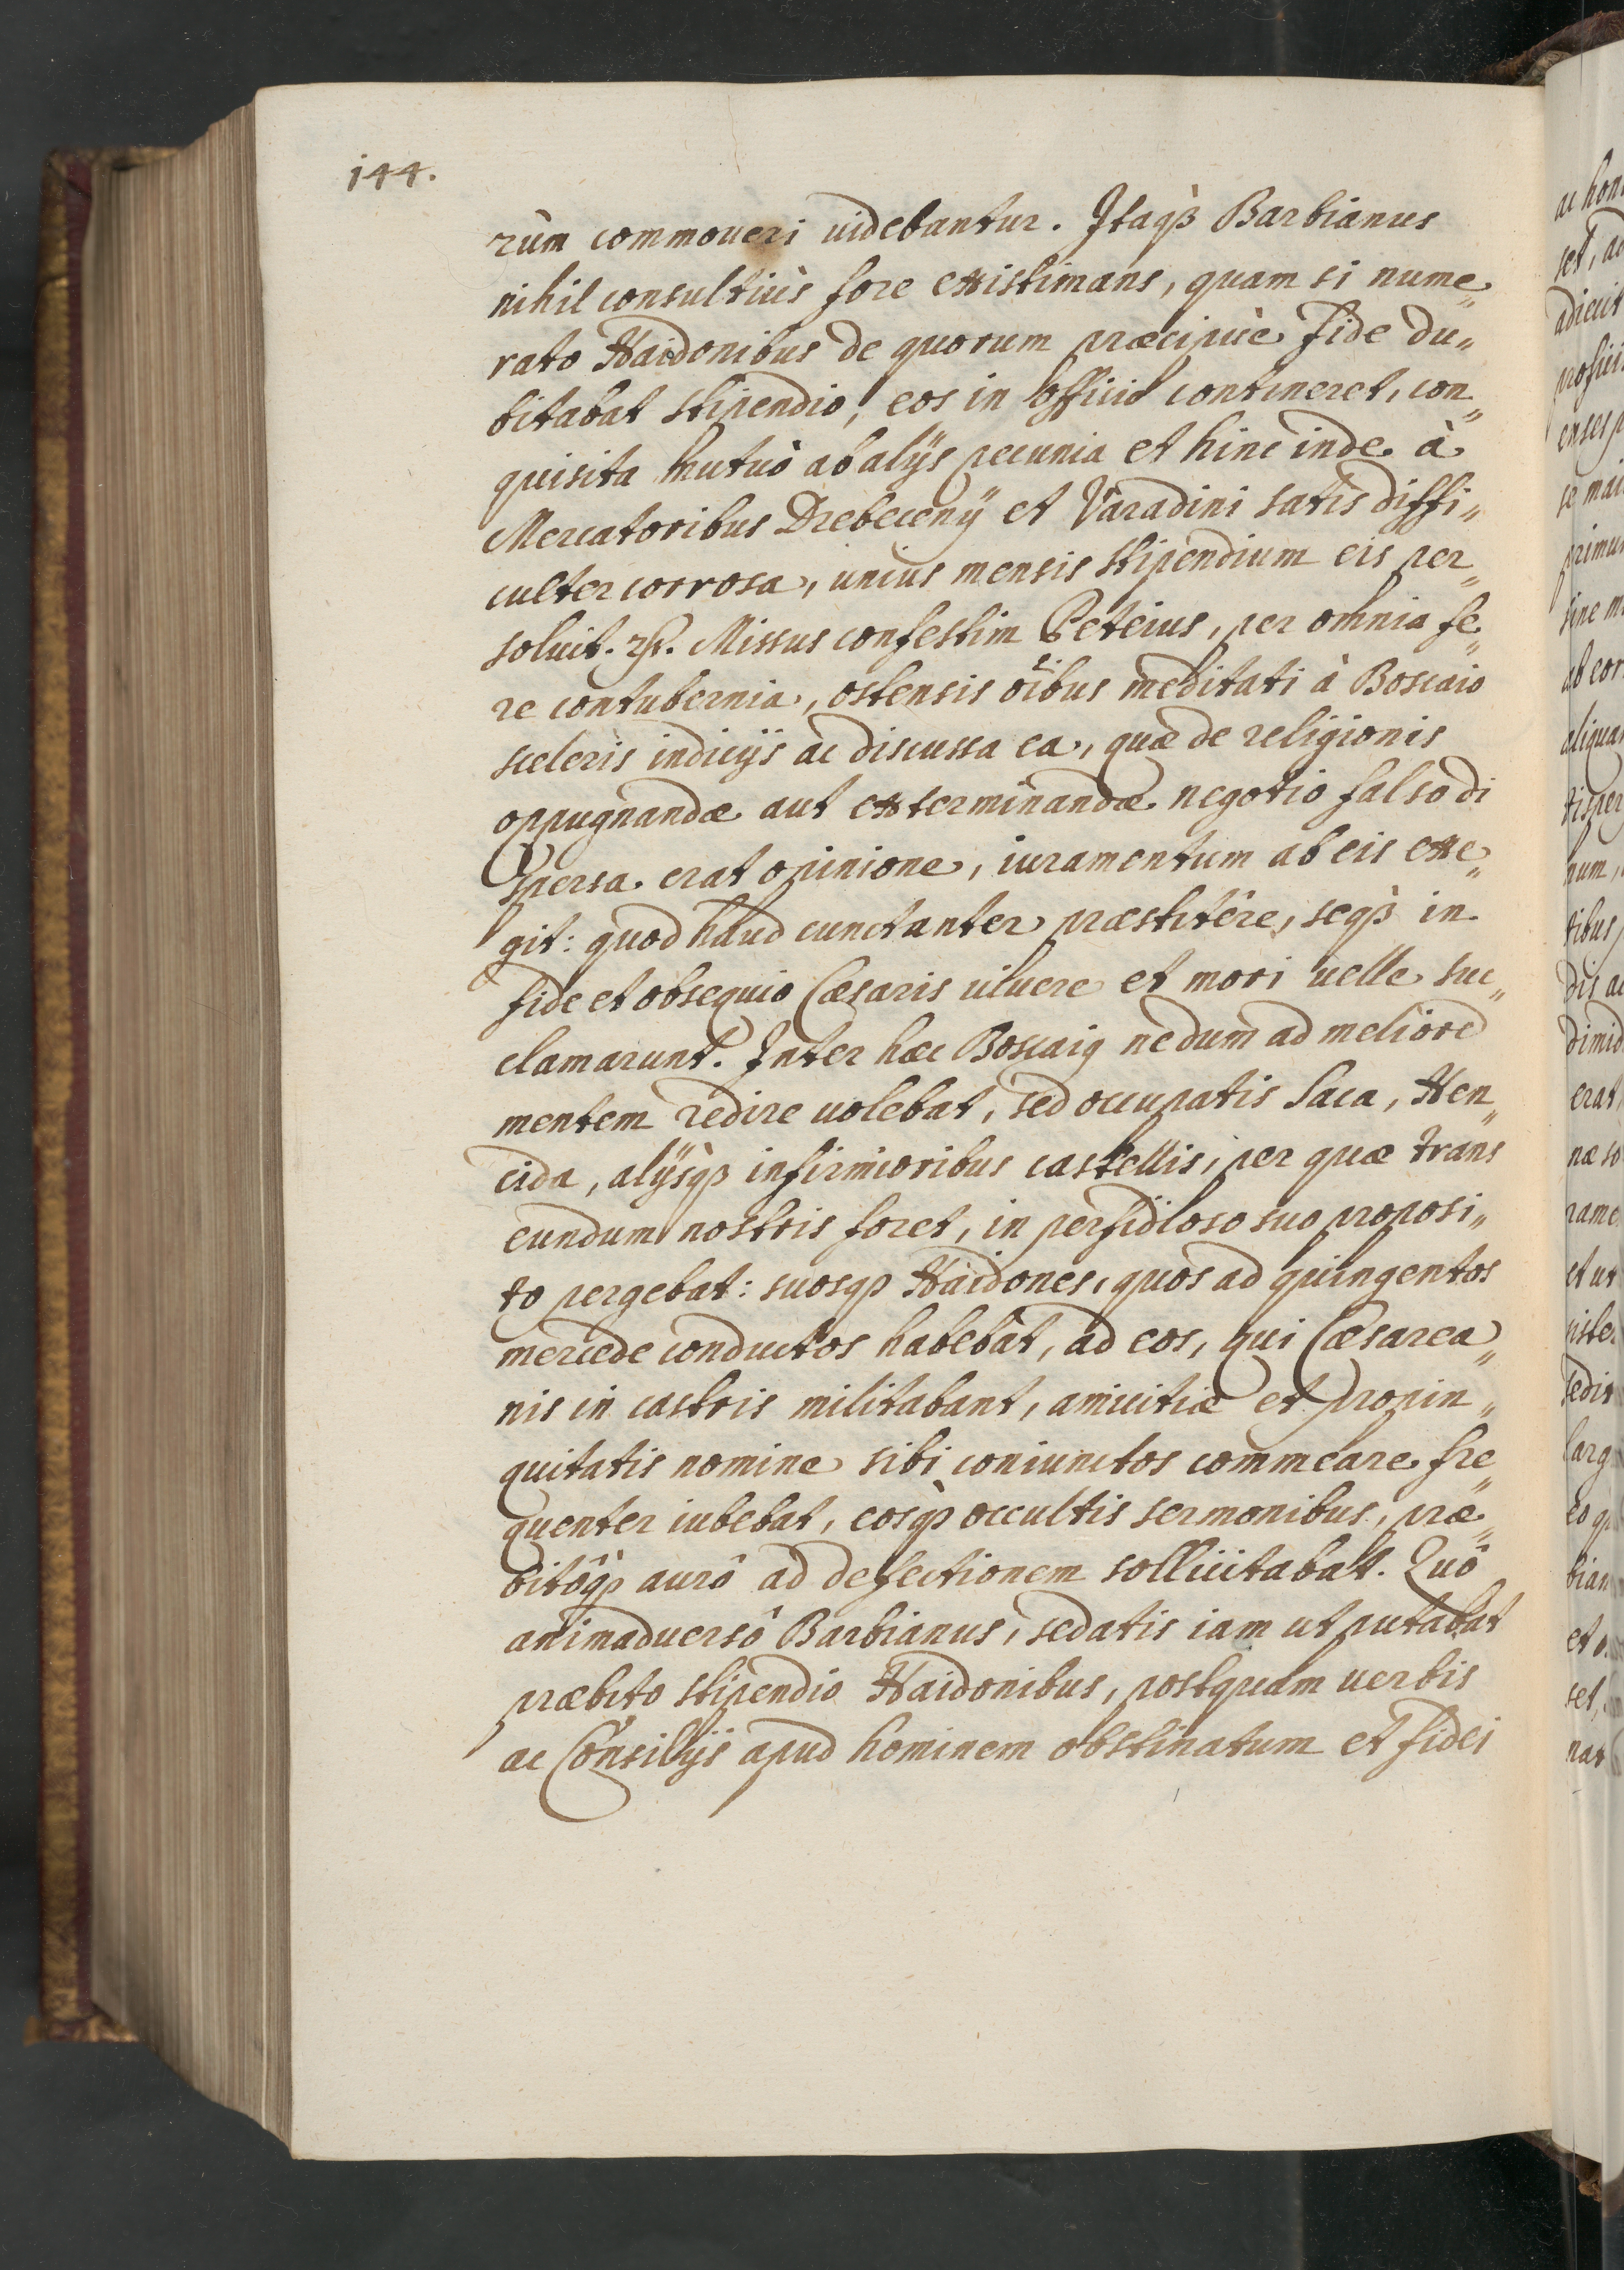 144.
rùm commoueri uidebantur. Itaqꝫ Barbianus
nihil consultiùs fore existimans, quam si nume„
rato Haidonibus de quorum præcipuè fide du„
bitabat stipendio, eos in officio contineret, con„
quisita mutuò ab alijs pecunia et hinc inde à
Mercatoribus Drebeceny et Varadini satis diffi„
culter corrosa, unius mensis stipendium eis per„
soluit. Missus confestim Peteius, per omnia fe„
re contubernia, ostensis oîbus meditati à Boscaio
sceleris indicijs ac discussa ea, quæ de religionis
oppugnandæ aut exterminandæ negotio falso di
spersa erat opinione, iuramentum ab eis exe„
git: quod haud cunctanter præstitêre, seqꝫ in
fide et obsequio Cæsaris uiuere et mori uelle suc„
clamarunt. Inter hæc Boscaiꝯ nedum ad meliorē
mentem redire uolebat, sed occupatis Saca, Hen„
cida, alijsqꝫ infirmioribus castellis, per quæ trans
eundum nostris foret, in perfidioso suo proposi„
to pergebat: suosqꝫ Haidones, quos ad quingentos
mercede conductos habebat, ad eos, qui Cæsarea„
nis in castris militabant, amicitiæ et propin„
quitatis nomine sibi coniunctos commeare fre„
quenter iubebat, eosqꝫ occultis sermonibus, præ„
bitôqꝫ aurô ad defectionem sollicitabat. Quô
animaduersô Barbianus, sedatis iam ut putabat
præbito stipendio Haidonibus, postquam uerbis
ac Consilijs apud hominem obstinatum et fidei